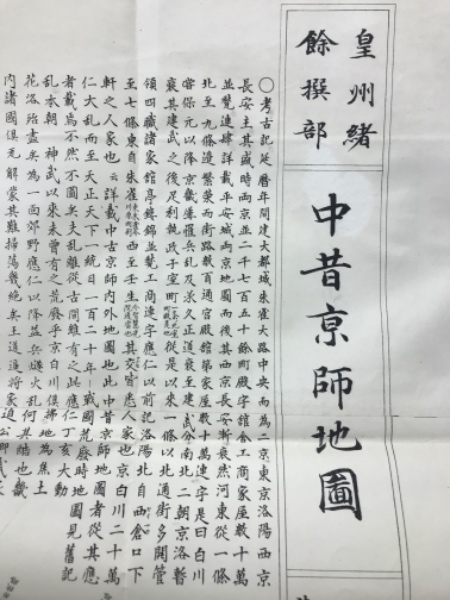 皇州緒
餘撰部
中昔京師地圖
〇考古記延暦年間建大都城朱雀大路中央而為二京東京洛陽西京
長安主其盛時両京並二千七百五十餘町殿宇館舎工商家屋数十萬
並甍連肆詳載平安城両京地圖而後其西京長安漸衰然河東從一條
北至九條邉繁荣而街路数百通宮殿館第家屋数十萬連宇是曰白川
保元以降京畿罹兵乱及承久正道衰至建武分南北二朝京洛暫
衰其建武之後足利執政于室町從是以来一條以北通街多開管
領四職諸家館亭鋒錦並甍工商連宇應仁以前記洛陽北自西倉口下
至七條東自朱雀西至壬生其交皆悉人家也京白川二十萬
軒之人家也云詳載中古京師内外地圖也此中昔京師地圖者從其應
仁大乱而至天正天下一統日一百二十年戰國荒廃時地圖見舊記
者載焉不然不圖矣夫乱離從古間雖有之此應仁丁亥大動
乱本朝神武以来未曽有之荒廢乎京白川俱掃地為焦土
花洛殆盡矣為一面郊野應仁以降益兵燹火乱何其酷也畿
内諸國俱无解蒙其難掃蕩幾絶矣王道將家追公卿武